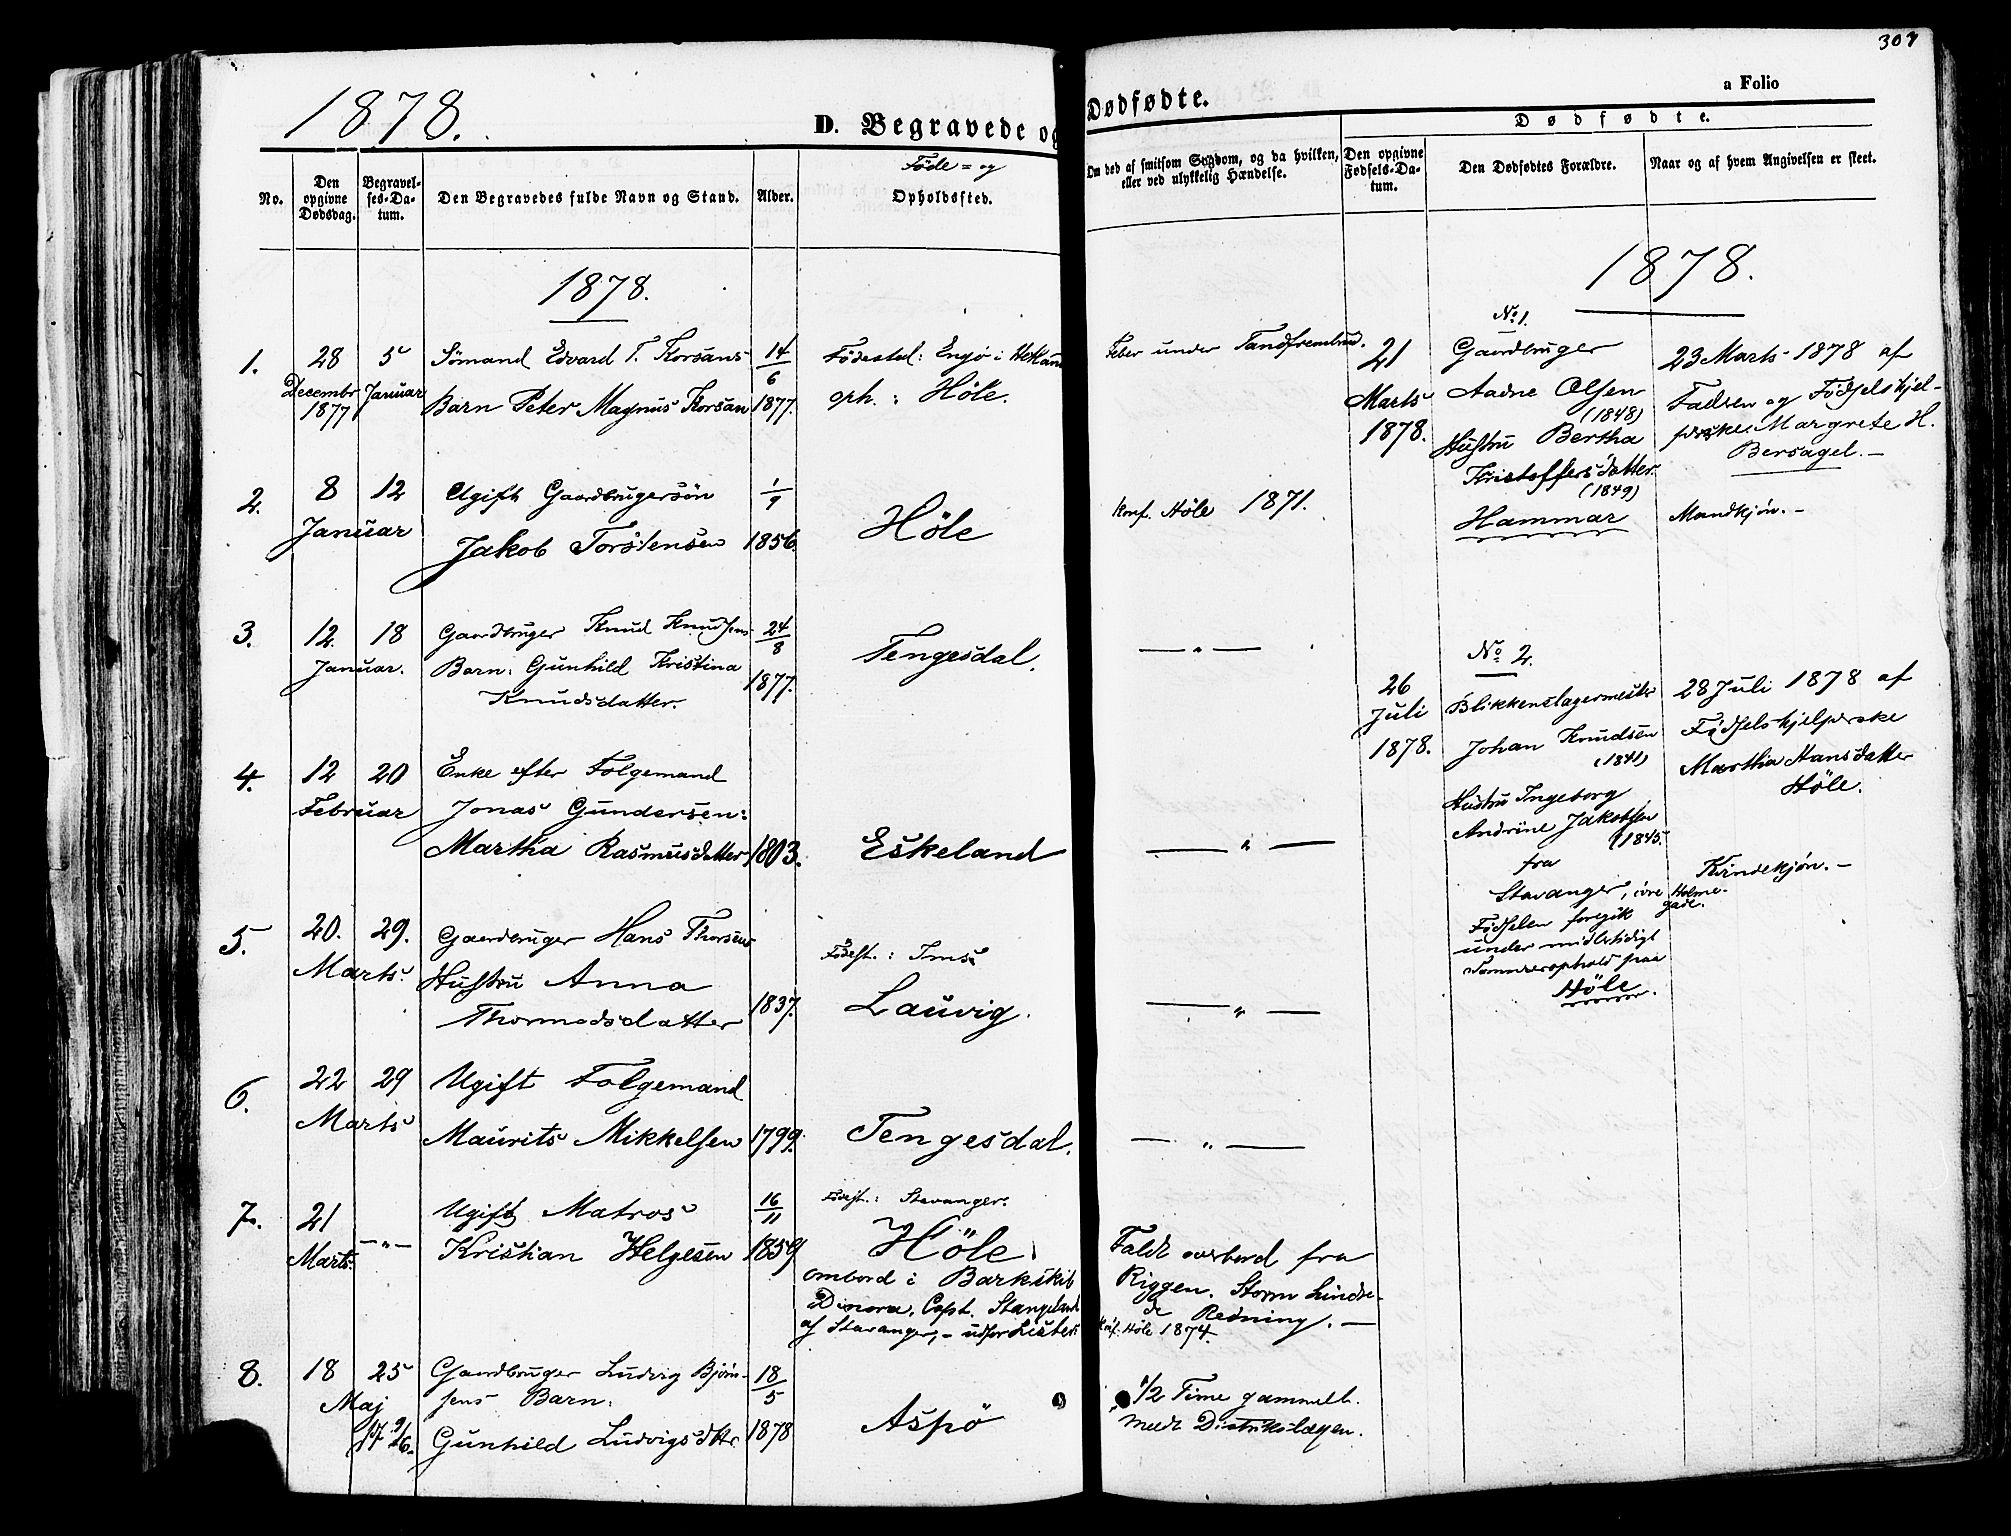 307
1878.
D. Begravede og
Dødfødte.
a Folio
No.
Den opgivne Dødsdag.
Begravelses-Datum.
Den Begravedes fulde Navn og Stand.
Alder.
Føde= og
Opholdssted.
Om død af smitsom Sygdom, og da hvilken, eller ved ulykkelig Hændelse.
Dødfødte.
Den opgivne Fødsels-Datum.
Den Dødfødtes Forældre.
Naar og af hvem Angivelsen er skeet.
1878.
1. 28 Decembr 1877 5 Januar
Sömand Edvard T. Korsans
Barn Peter Magnus Korsan
14/6 1877.
Födested: Engö i
oph. : Höle.
Feber under
2. 8 12 Januar
Ugift Gaardbrugersön
Jakob Torstensen
1/9 1856.
Höle
Konf. Höle 1871.
3. 12. 18 Januar.
Gaardbruger Knud Knudsens
Barn: Gunhild Kristina
Knudsdatter.
24/8 1877.
Tengesdal.
— " —
4. 12 20 Februar
Enke efter Folgemand
Jonas Gundersen:
Martha Rasmusdatter
1803.
Eskeland
— " —
5. 20. 29. Marts.
Gaardbruger Hans Thorsens
Hustru Anna
Thormodsdatter
1837.
Födest. : Ims
Lauvig.
— " —
6. 22 29 Marts
Ugift Folgemand
Maurits Mikkelsen
1799.
Tengesdal.
— " —
7. 21 Marts — " —
Ugift Matros
Kristian Helgesen
16/11 1859
Födest.: Stavanger.
Höle.
ombord i Barkskib
Dinora, Capt. Stangeland
af Stavanger, – udfor Lister.
Faldt overbord fra
Riggen. Storm hindre-
de Redning. –
Konf. Höle 1874.
8. 18 25 Maj
Gaardbruger Ludvig Björn-
sens Barn:
Gunhild Ludvigsdtr.
18/5 1878
Aspö
1/2 Time gammelt.
Distriktslægen.
1878.
No. 1.
21 Marts 1878.
Gaardbruger
Aadne Olsen
(1848)
Hustru Bertha
Kristoffersdatter.
(1849)
Hammar
23 Marts 1878 af
Faderen og Födselshjel-
perske Margrete H.
Bersagel. –
Mandkjön. –
No. 2.
26 Juli 1878.
Blikkenslagermester
Johan Knudsen
(1841)
Hustru Ingeborg
Andrine Jakobsen
(1845.
fra
Stavanger, övre Holme-
gade.
Födselen foregik
under midlertidigt
Sommerophold paa
Höle.
28 Juli 1878 af
Födselshjelperske
Martha Hansdatter
Höle.
Kvindekjön. –